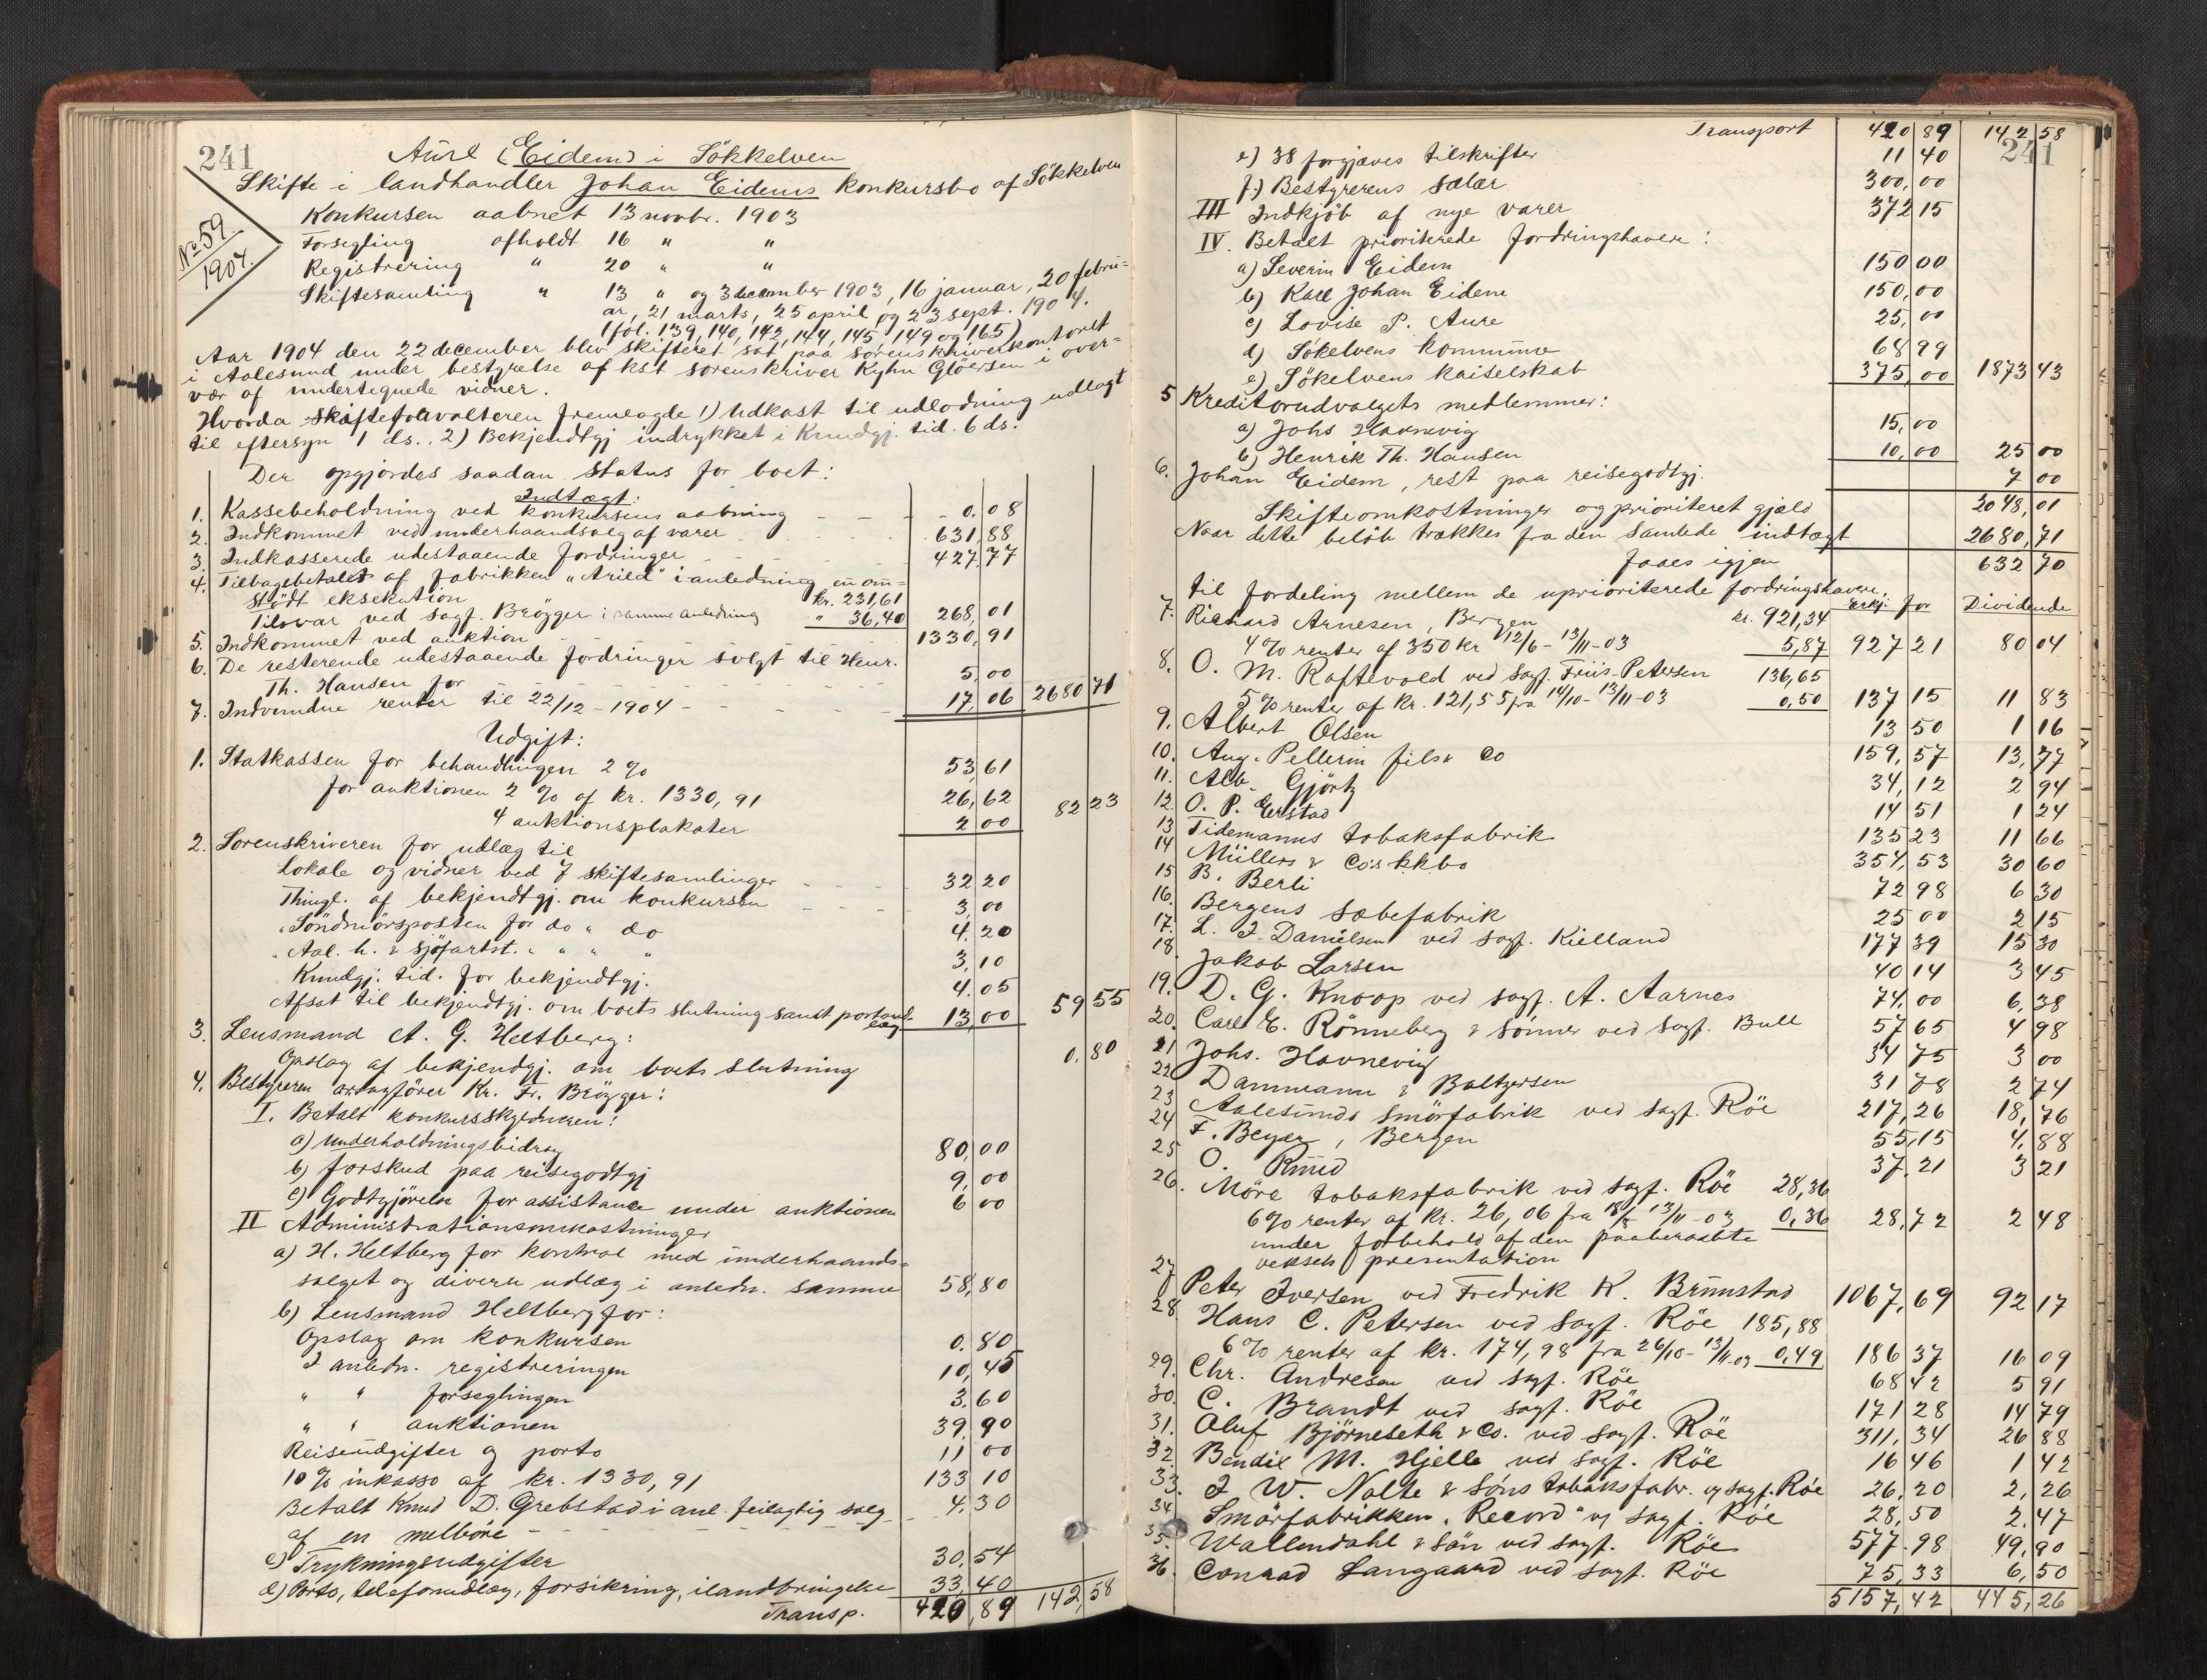 241
Aure (Eidem) i Sökkelven
Skifte i landhandler Johan Eidems konkursbo af Sökkelven
No. 59/1904.
Konkursen aabnet 13 novbr. 1903
Forsegling afholdt 16 " "
Registrering " 20 " "
Skiftesamling " 13 " og 3 december 1903, 16 januar, 20 febru=
ar, 21 marts, 25 april og 23 sept. 1904.
(fol. 139, 140, 142, 144, 145, 149 og 165)
Aar 1904 den 22 december blev skifteret sat paa sorenskriverkontoret
i Aalesund under bestyrelse af kst sorenskriver Kyhn Glöersen i over=
vær af undertegnede vidner.
Hvorda skifteforvalteren fremlagde 1) Udkast til udlodning udlagt
til eftersyn 1 ds., 2) Bekjendtgj indrykket i Kundgj. tid. 6 ds.
Der opgjordes saadan status for boet:
Indtægt:
1. Kassebeholdning ved konkursens aabning 0.08
2. Indkommet ved underhaandsalg af varer 631,88
3. Indkasserede udestaaende fordringer 427,77
4. Tilbagebetalt af fabrikken "Arild" i anledning en om=
stödt eksekution kr. 231,61
Tilsvar ved sagf. Brögger i samme anledning " 36,40 268,01
5. Indkommet ved auktion 1330,91
6. De resterende udestaaende fordringer solgt til Henr.
Th. Hansen for 5,00
7. Indvundne renter til 22/12-1904 17,06 2680 71
Udgift:
1. Statkassen for behandlingen 2 % 53,61
for auktionen 2 % af kr. 1330,91 26,62
4 auktionsplakater 2 00 82 23
2. Sorenskriveren for udlæg til
Lokale og vidner ved 7 skiftesamlinger 32 20
Thingl. af bekjendtgj. om konkursen 3,00
" Söndmörsposten for do " do 4.20
" Aal. h. & sjöfartst. " " " 3,10
Kundgj. tid. for bekjendtgj. 4.05
Afsat til bekjendtgj. om boets slutning samt portoud=
læg 13,00 59 55
3. Lensmand A. G. Heltberg:
Opslag af bekjendgj. om boets slutning 0.80
4. Bestyreren orsagförer Kr. Fr. Brögger:
I. Betalt konkursskyldneren:
a) Underholdningsbidrag 80,00
b) forskud paa reisegodtgj 9,00
c) Godtgjörelse for assistance under auktionen 6 00
II Administrationsomkostninger
a) H. Heltberg for kontrol med underhaands=
salget og diverse udlæg i anledn. samme 58,80
b) Lensmand Heltberg for:
Opslag om konkursen 0.80
I anledn. registreringen 10,45
" " forseglingen 3,60
" " auktionen 39,90
Reiseudgifter og porto 11 00
10 % inkasso af kr. 1330,91 133 10
Betalt Knud D. Grebstad i anl. feilagtig salg
af en melböre 4,30
c) Trykningsudgifter 30.54
d) Porto, telefonudlæg, forsikring, ilandbringelse 33,40
Transp. 420,89 142,58
Transport 420 89 142 58
241
e) 38 forgjæves tilskrifter 11 40
f.) Bestyrerens salær 300,00
III Indkjöb af nye varer 372 15
IV. Betalt prioriterede fordringshavere:
a) Severin Eidem 150 00
b) Karl Johan Eidem 150,00
c) Lovise P. Aure 25,00
d) Sökelvens kommune 68 99
e) Sökelvens kaiselskab 375,00 1873 43
5 Kreditorudvalgets medlemmer:
a) Johs Havnevig 15,00
b) Henrik Th. Hansen 10,00 25 00
6. Johan Eidem, rest paa reisegodtgj. 7 00
Skifteomkostninger og prioriteret gjæld 2048,01
Naar dette belöb trækkes fra den samlede indtægt 2680,71
faaes igjen 632 70
til fordeling mellem de uprioriterede fordringshavere.
erkj. for Dividende
7. Richard Arnesen, Bergen kr. 921,34
4 % renter af 350 kr 12/6-13/11-03 5,87 927 21 80 04
8. O. M. Raftevold ved sagf. Friis-Petersen 136,65
5 % renter af kr. 121,55 fra 14/10-13/11-03 0,50 137 15 11 83
9. Albert Olsen 13 50 1 16
10. Aug. Pellerin fils & Co 159,57 13,77
11. Alb. Gjörtz 34,12 2 94
12. O. P. Erstad 14 51 1 24
13 Tidemanns tobaksfabrik 135 23 11 66
14 Müllers & Co's kkbo 354,53 30 60
15 B. Berli 72 98 6 30
16. Bergens sæbefabrik 25 00 2 15
17. L. J. Danielsen ved sagf. Kielland 177 39 15 30
18. Jakob Larsen 40 14 3 45
19. D. G. Knoop ved sagf. A. Aarnes 74,00 6,38
20. Carl E. Rönneberg & sönner ved sagf. Bull 57 65 4 98
21 Johs. Havnevig 34 75 3 00
22 Dammann & Baltzersen 31 78 2 74
23 Aalesunds smörfabrik ved sagf. Röe 217,26 18,76
24 F. Beyer, Bergen 55,15 4,88
25 O. Ruud 37.21 3 21
26. Möre tobaksfabrik ved sagf. Röe 28,36
6 % renter af kr. 26,06 fra 18/8 13/11-03 0,36 28,72 2 48
under forbehold af den paaberaabte
veksels presentation
27 Peter Iversen ved Fredrik K. Brunstad 1067,69 92 17
28. Hans C. Petersen ved sagf. Röe 185,88
6 % renter af kr. 174,98 fra 26/10-13/11-03 0,49 186 37 16 09
29. Chr. Andresen ved sagf. Röe 68 42 5 91
30. C. Brandt ved sagf. Röe 171 28 14 79
31. Oluf Björneseth & Co. ved sagf. Röe 311,34 26 88
32. Bendix M. Hjelle ved sagf. Röe 16 46 1 42
33. J. W. Nolte & Söns tobaksfabr. v/ sagf. Röe 26,20 2,26
34 Smörfabrikken "Record" v/ sagf. Röe 28,50 2.47
35. Wallendahl & sön ved sagf. Röe 577.98 49,90
36. Conrad Langaard ved sagf. Röe 75,33 6,50
5157,42 445,26